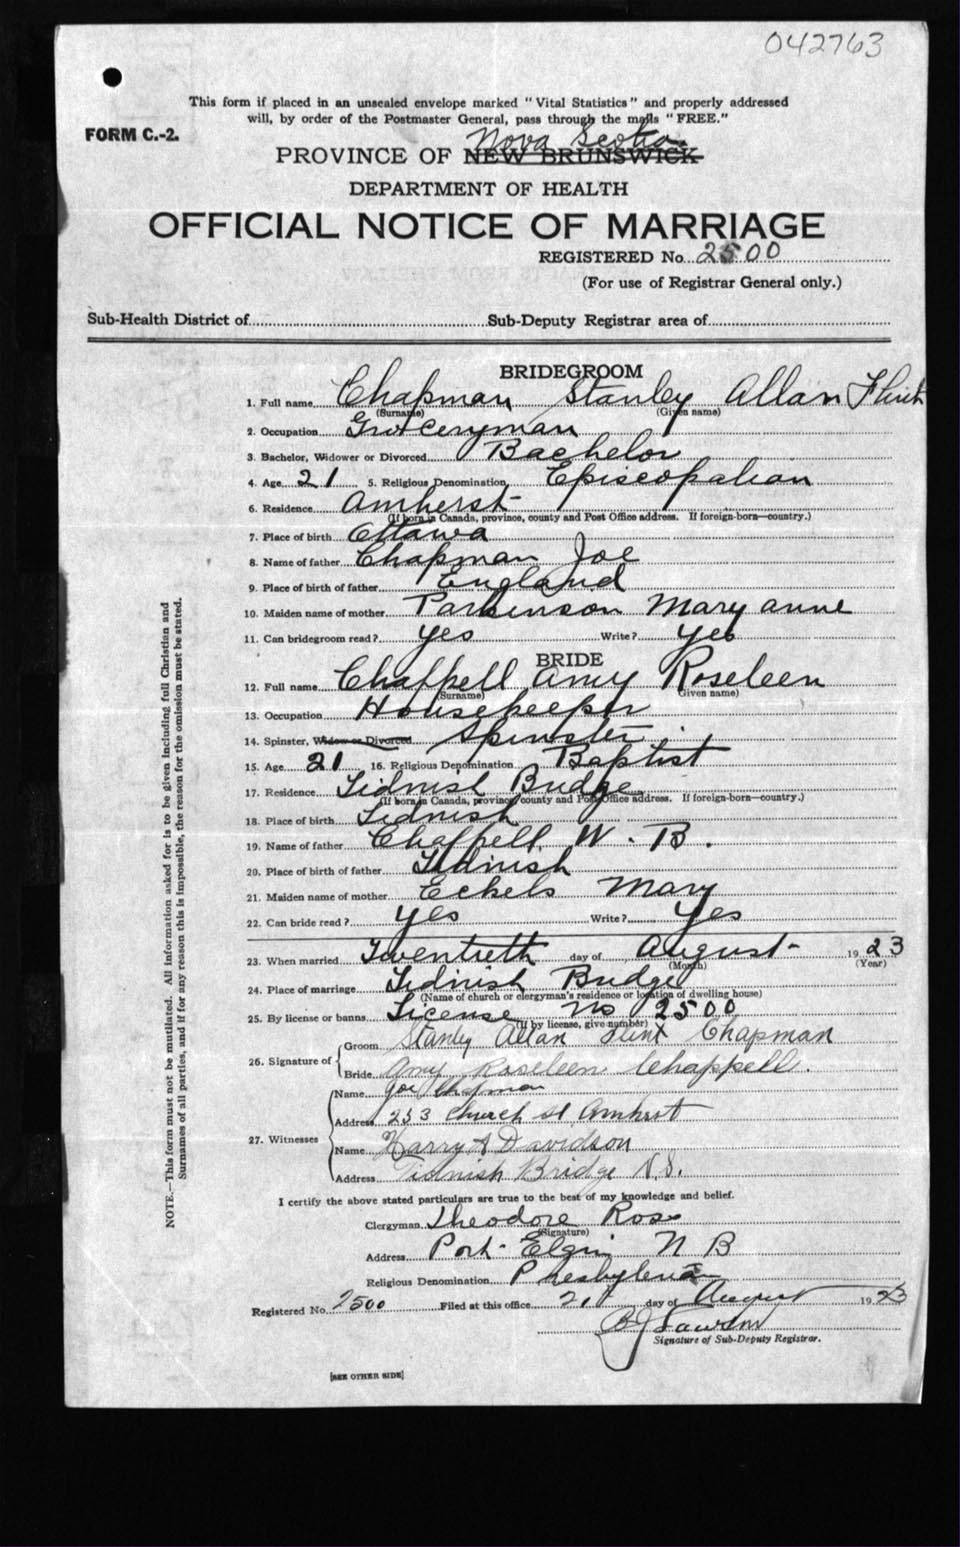 042763
This form if placed in an unsealed envelope marked "Vital Statistics" and properly addressed
will, by order of the Postmaster General, pass through the mails "FREE."
FORM C.-2.
Nova Scotia
PROVINCE OF NEW BRUNSWICK
DEPARTMENT OF HEALTH
OFFICIAL NOTICE OF MARRIAGE
REGISTERED No. 2500
(For use of Registrar General only.)
Sub-Health District of Sub-Deputy Registrar area of
BRIDEGROOM
1. Full name Chapman Stanley Allan Flint
(Surname) (Given name)
2. Occupation Grotceryman
3. Bachelor, Widower or Divorced Bachelor
4. Age 21 5. Religious Denomination Episcopalian
6. Residence Amherst
(If born in Canada, province, county and Post Office address. If foreign-born—country.)
7. Place of birth Ottawa
8. Name of father Chapman Joe
9. Place of birth of father England
10. Maiden name of mother Parkinson Mary anne
11. Can bridegroom read? yes Write? yes
BRIDE
12. Full name Chappell Amy Roseleen
(Surname) (Given name)
13. Occupation Housekeeper
14. Spinster, Widow or Divorced Spinster
15. Age 21 16. Religious Denomination Baptist
17. Residence Tidnish Bridge
(If born in Canada, province, county and Post Office address. If foreign-born—country.)
18. Place of birth Tidnish
19. Name of father Chappell W. B.
20. Place of birth of father Tidnish
21. Maiden name of mother Eckels Mary
22. Can bride read? yes Write? yes
23. When married Twentieth day of August 1923
(Month) (Year)
24. Place of marriage Tidnish Bridge
(Name of church or clergyman's residence or location of dwelling house)
25. By license or banns License No 2500
(If by license, give number)
26. Signature of Groom Stanley Allan Flint Chapman
Bride Amy Roseleen Chappell.
27. Witnesses Name Joe Chapman
Address 253 Church st Amherst
Name Harry A Davidson
Address Tidnish Bridge N.S.
I certify the above stated particulars are true to the best of my knowledge and belief.
Clergyman Theodore Ross
(Signature)
Address Port Elgin N B
Religious Denomination Presbyterian
Registered No. 2500 Filed at this office 21 day of August 1923
Lawson
Signature of Sub-Deputy Registrar.
[SEE OTHER SIDE]
NOTE.—This form must not be mutilated. All information asked for is to be given including full Christian and
Surnames of all parties, and if for any reason this is impossible, the reason for the omission must be stated.